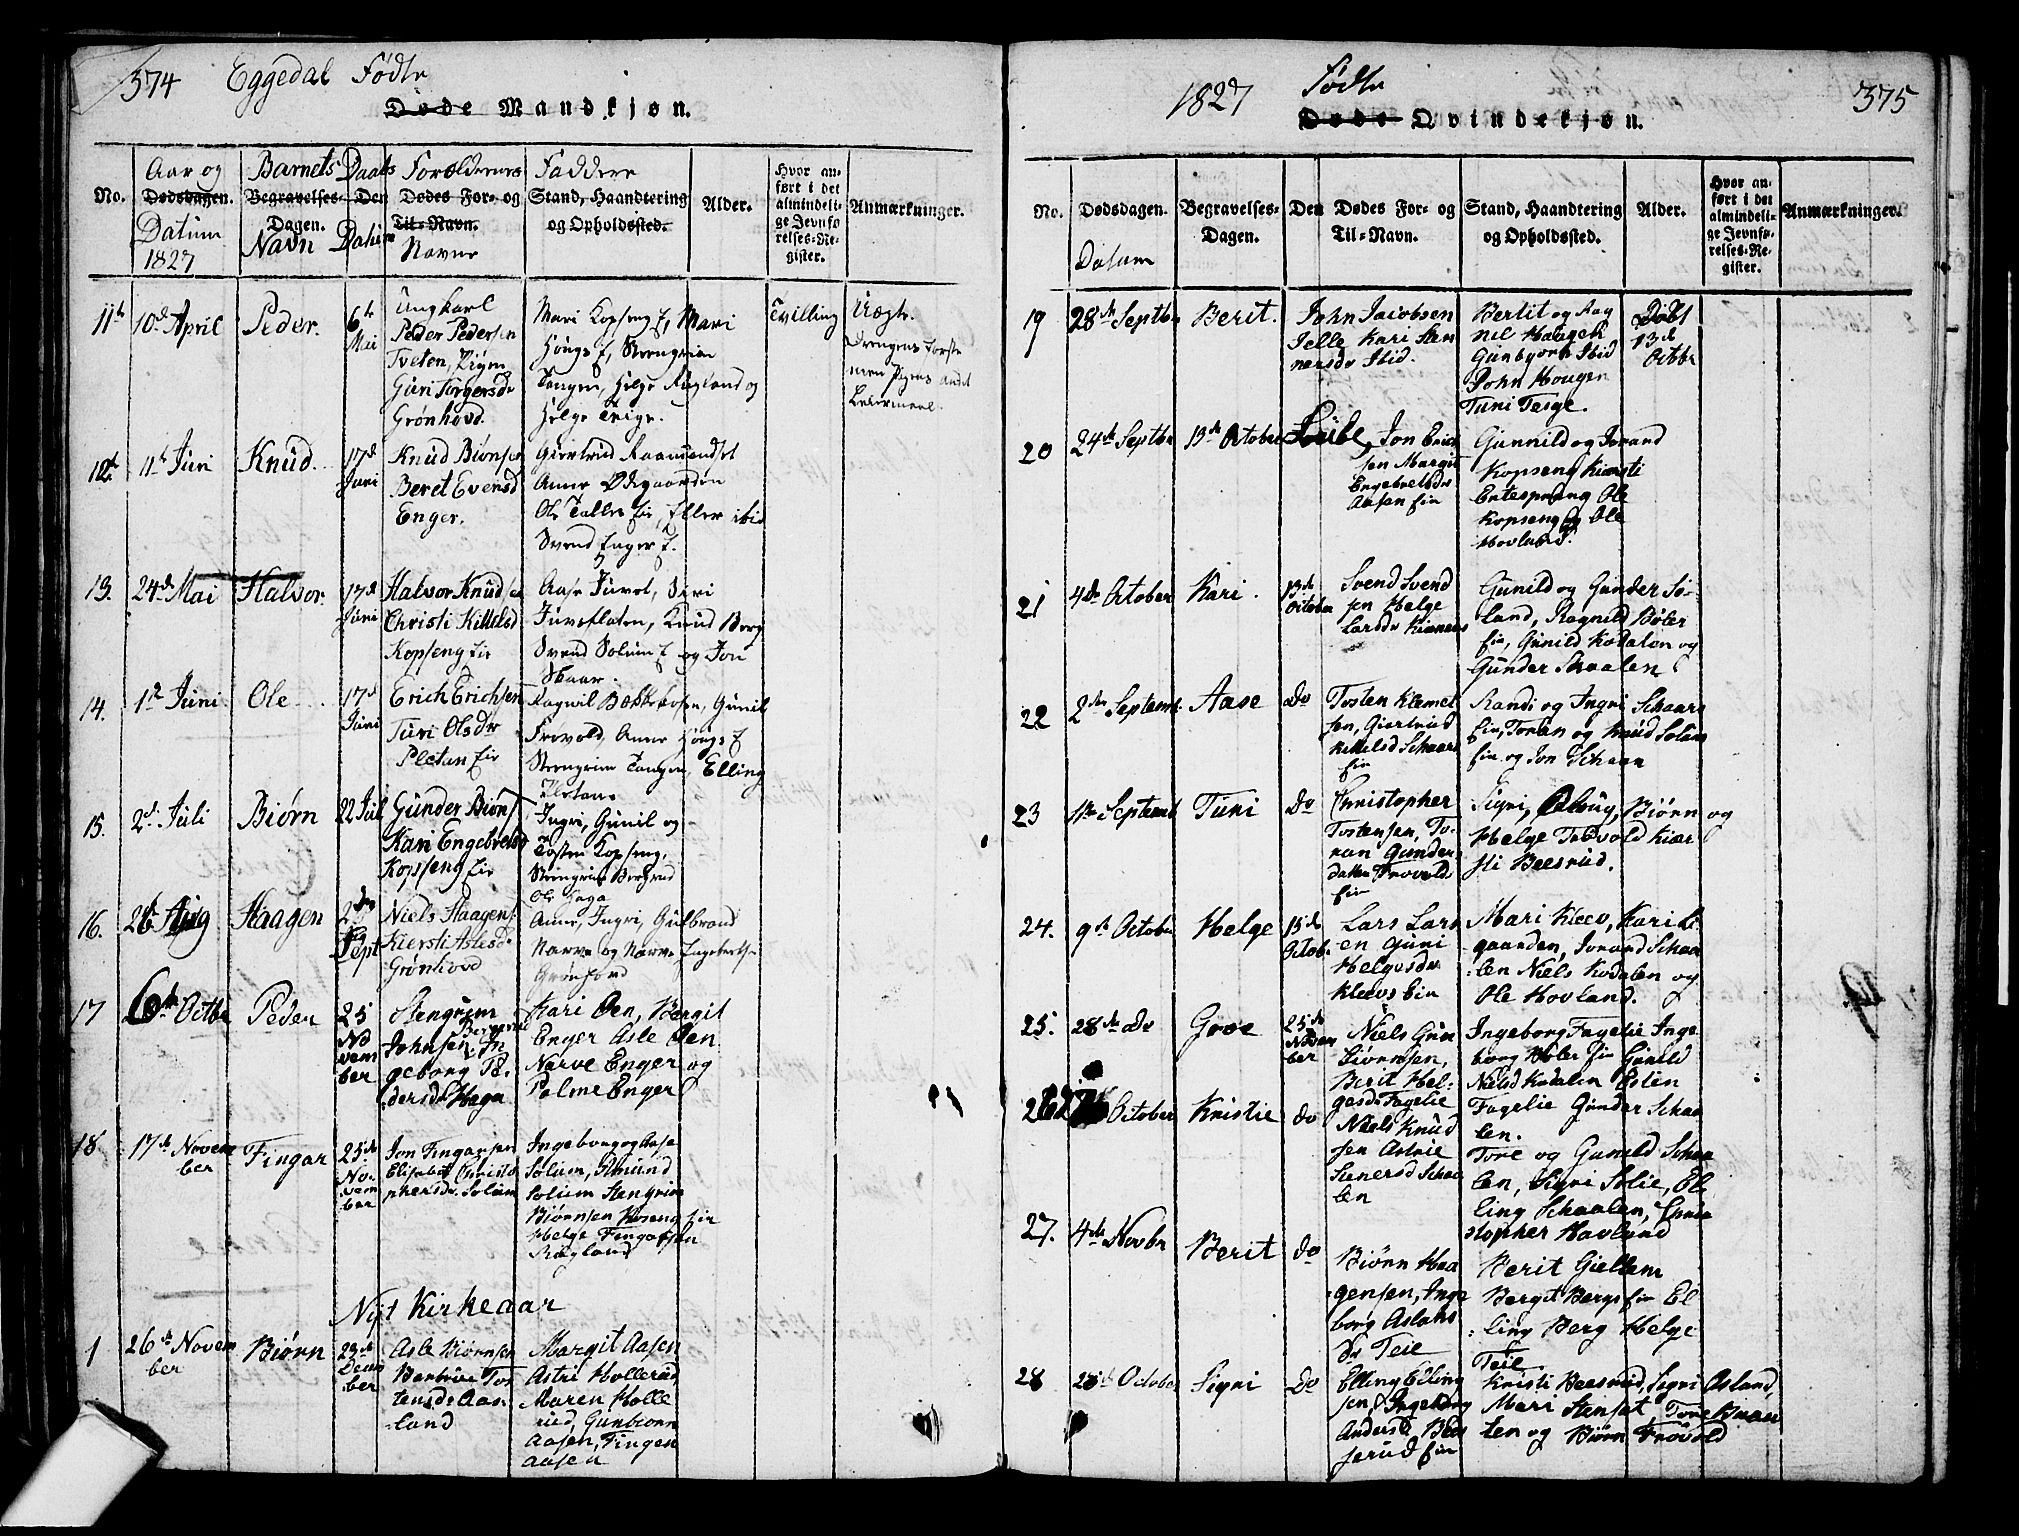 374 Eggedal Fødte
Døde Mandkjøn.
No.
Aar og
Dødsdagen.
Datum
1827
Barnets
Begravelses-
Dagen.
Navn
Daabs
Den
Datum
Forældrenes
Dødes For- og
Til-Navn.
Navne
Faddere
Stand, Haandtering
og Opholdssted.
Alder.
Hvor an-
ført i det
almindeli-
ge Jevnfø-
relses-Re-
gister.
Anmærkninger.
11te 10de April Peder. 6te
Mai
Ungkarl
Peder Pedersen
Tveten, Pigen
Guri Torgersdr
Grønhovd.
Mari Kopseng E, Mari
Høugs E, Steengrim
Tangen, Helge Rugland og
Helge Teige.
Tvilling
Uægte.
Drengens første
men Pigens andet
Leiermaal.
12te 11te Juni Knud. 17de
Juni
Knud Biønsen
Beret Evensd
Enger.
Giertrud
Anne Ødegaarden
Ole Ei, Eller ibid
Svend Enger E.
13. 24de Mai Halvor. 17de
Juni
Halvor Knudsen
Christi Kittelsd
Kopseng Eie
Aase Juvet, Siri
Juvsfloten, Knud Berg
Svend Solum E og Jon
Skaar.
14. 1te Juni Ole 17de
Juni
Erich Erichsen
Turi Olsdr
Pletan Eie
Ragnil Bekkehosen, Gunil
Frøvold, Anne Høugs E
Steengrim Tangen, Elling
15. 2de Juli Biørn 22 Juli
Gunder Biøns
Kari Engebretsd
Kopseng Eie
Ingri, Gunil og
Tosten Kopseng,
Steengrim Bergrud
Ole Haga
16. 26 Aug Haagen 2den
Sept
Niels Haagens
Kiersti Aslesdr
Grønhovd
Anne, Ingri, Gulbrand
Narve og Narve Ingebretsen
Grønhovd
17 6te Octbr Peder 25
No
vem
ber
Stengrim
Johnsen Bergerud
In
geborg Pe.
dersdr Haga
Kari Øen, Bergit
Enger Asle Øen
Narve Enger og
Palme Enger
18. 17de Novem
ber
Fingar 25de
No.
vem
ber
Jon Fingarsen
Elisabet Christo
phersdr Solum
Ingeborg og Aase
Solum, Amund
Solum Stengrim
Biørnsen Kopseng Eie
Helge Fingarsen
Rugland
Nyt Kirkeaar
1 26de Novem
ber
Biørn 23de
Decem
ber
Asle Biørnsen
Barbroe Tos
tensdr Aas
land
Margit Aasen
Astri Hollerud
Maren Holle
rud, Gunbiørn
Aasen, Fingen
Aasen
1827 Fødte 375
Døde Qvindekjøn.
No.
Dødsdagen.
Datum
Begravelses-
Dagen.
Den
Dødes For- og
Til-Navn.
Stand, Haandtering
og Opholdssted.
Alder.
Hvor an-
ført i det
almindeli-
ge Jevnfø-
relses-Re-
gister.
Anmærkninger.
19 28de Septbr Berit.
John Jacobsen
Jelle Kari Sten
nersdr Ibid.
Bertit og Rag
nil Haugen
Gunbjorn Ibid
John Hougen
Turi Teige.
Døbt
13de
Octbr
20 24de Septbr 13de October Livbe, Jon Erich
sen Margit
Engebretsdr
Aasen Eie
Gunnild og Jorand
Kopseng Kiersti
Entesprang Ole
Kopseng og Ole
Hovland.
21 4de October Kari. 13de
October
Svend Svend
sen Helge
Larsdr
Gunild og Gunder So-
land, Ragnild Bøler
Eie, Gunild Kodalen og
Gunder Skaalen
22 2den Septembr Aase do
Tosten Klemet
sen, Giertrud
Kittelsd Schaars
Eie
Randi og Ingri Schaars
Eie, Torsten og Knud Solum
Eie og Jon Schaar
23 11te Septembr Turi do
Christopher
Tostensen, To-
ran Gunder
datter Frovolds
Eie
Sigri, Aslaug, Biørn og
Helge Frovold Kier
sti Beesrud.
24. 9de October Helge 15de
Octob.
Lars Lars
en Guri
Helgesdr
Kleevs Eie
Mari Kleev, Kari
gaarden, Jorand Schaa
len Niels Kodalen og
Ole Hovland.
25. 28de do Groe 25de
Novem
ber
Niels Gun
biørnsen,
Berit Hel-
gesdr Fagelie
Ingeborg Fagelie Inge
borg Bøler Eie Gunild
Nielsd Kodalen Esten
Fagelie Gunder Schaa
len.
26 October Kristie do
Niels Knud
sen Astrie
Stenersd Schaa
len
Tore og Gunild Schaa
len, Sigri Solie, El
ling Schaalen, Chri
stopher Havland
27. 4de Novbr Berit do
Biørn Haa
gensen, Inge
borg Aslaks
dr Teie
Berit Giellum
Bergit Bergs Eie El
ling Berg Helge
Teie
28 28de October Sigri do
Elling Elling
sen, Ingeborg
Andersd Bee
serud Eie
Kristi Beesrud, Sigri Aasland,
Mari Stenset Tore
ten og Biørn Frovold